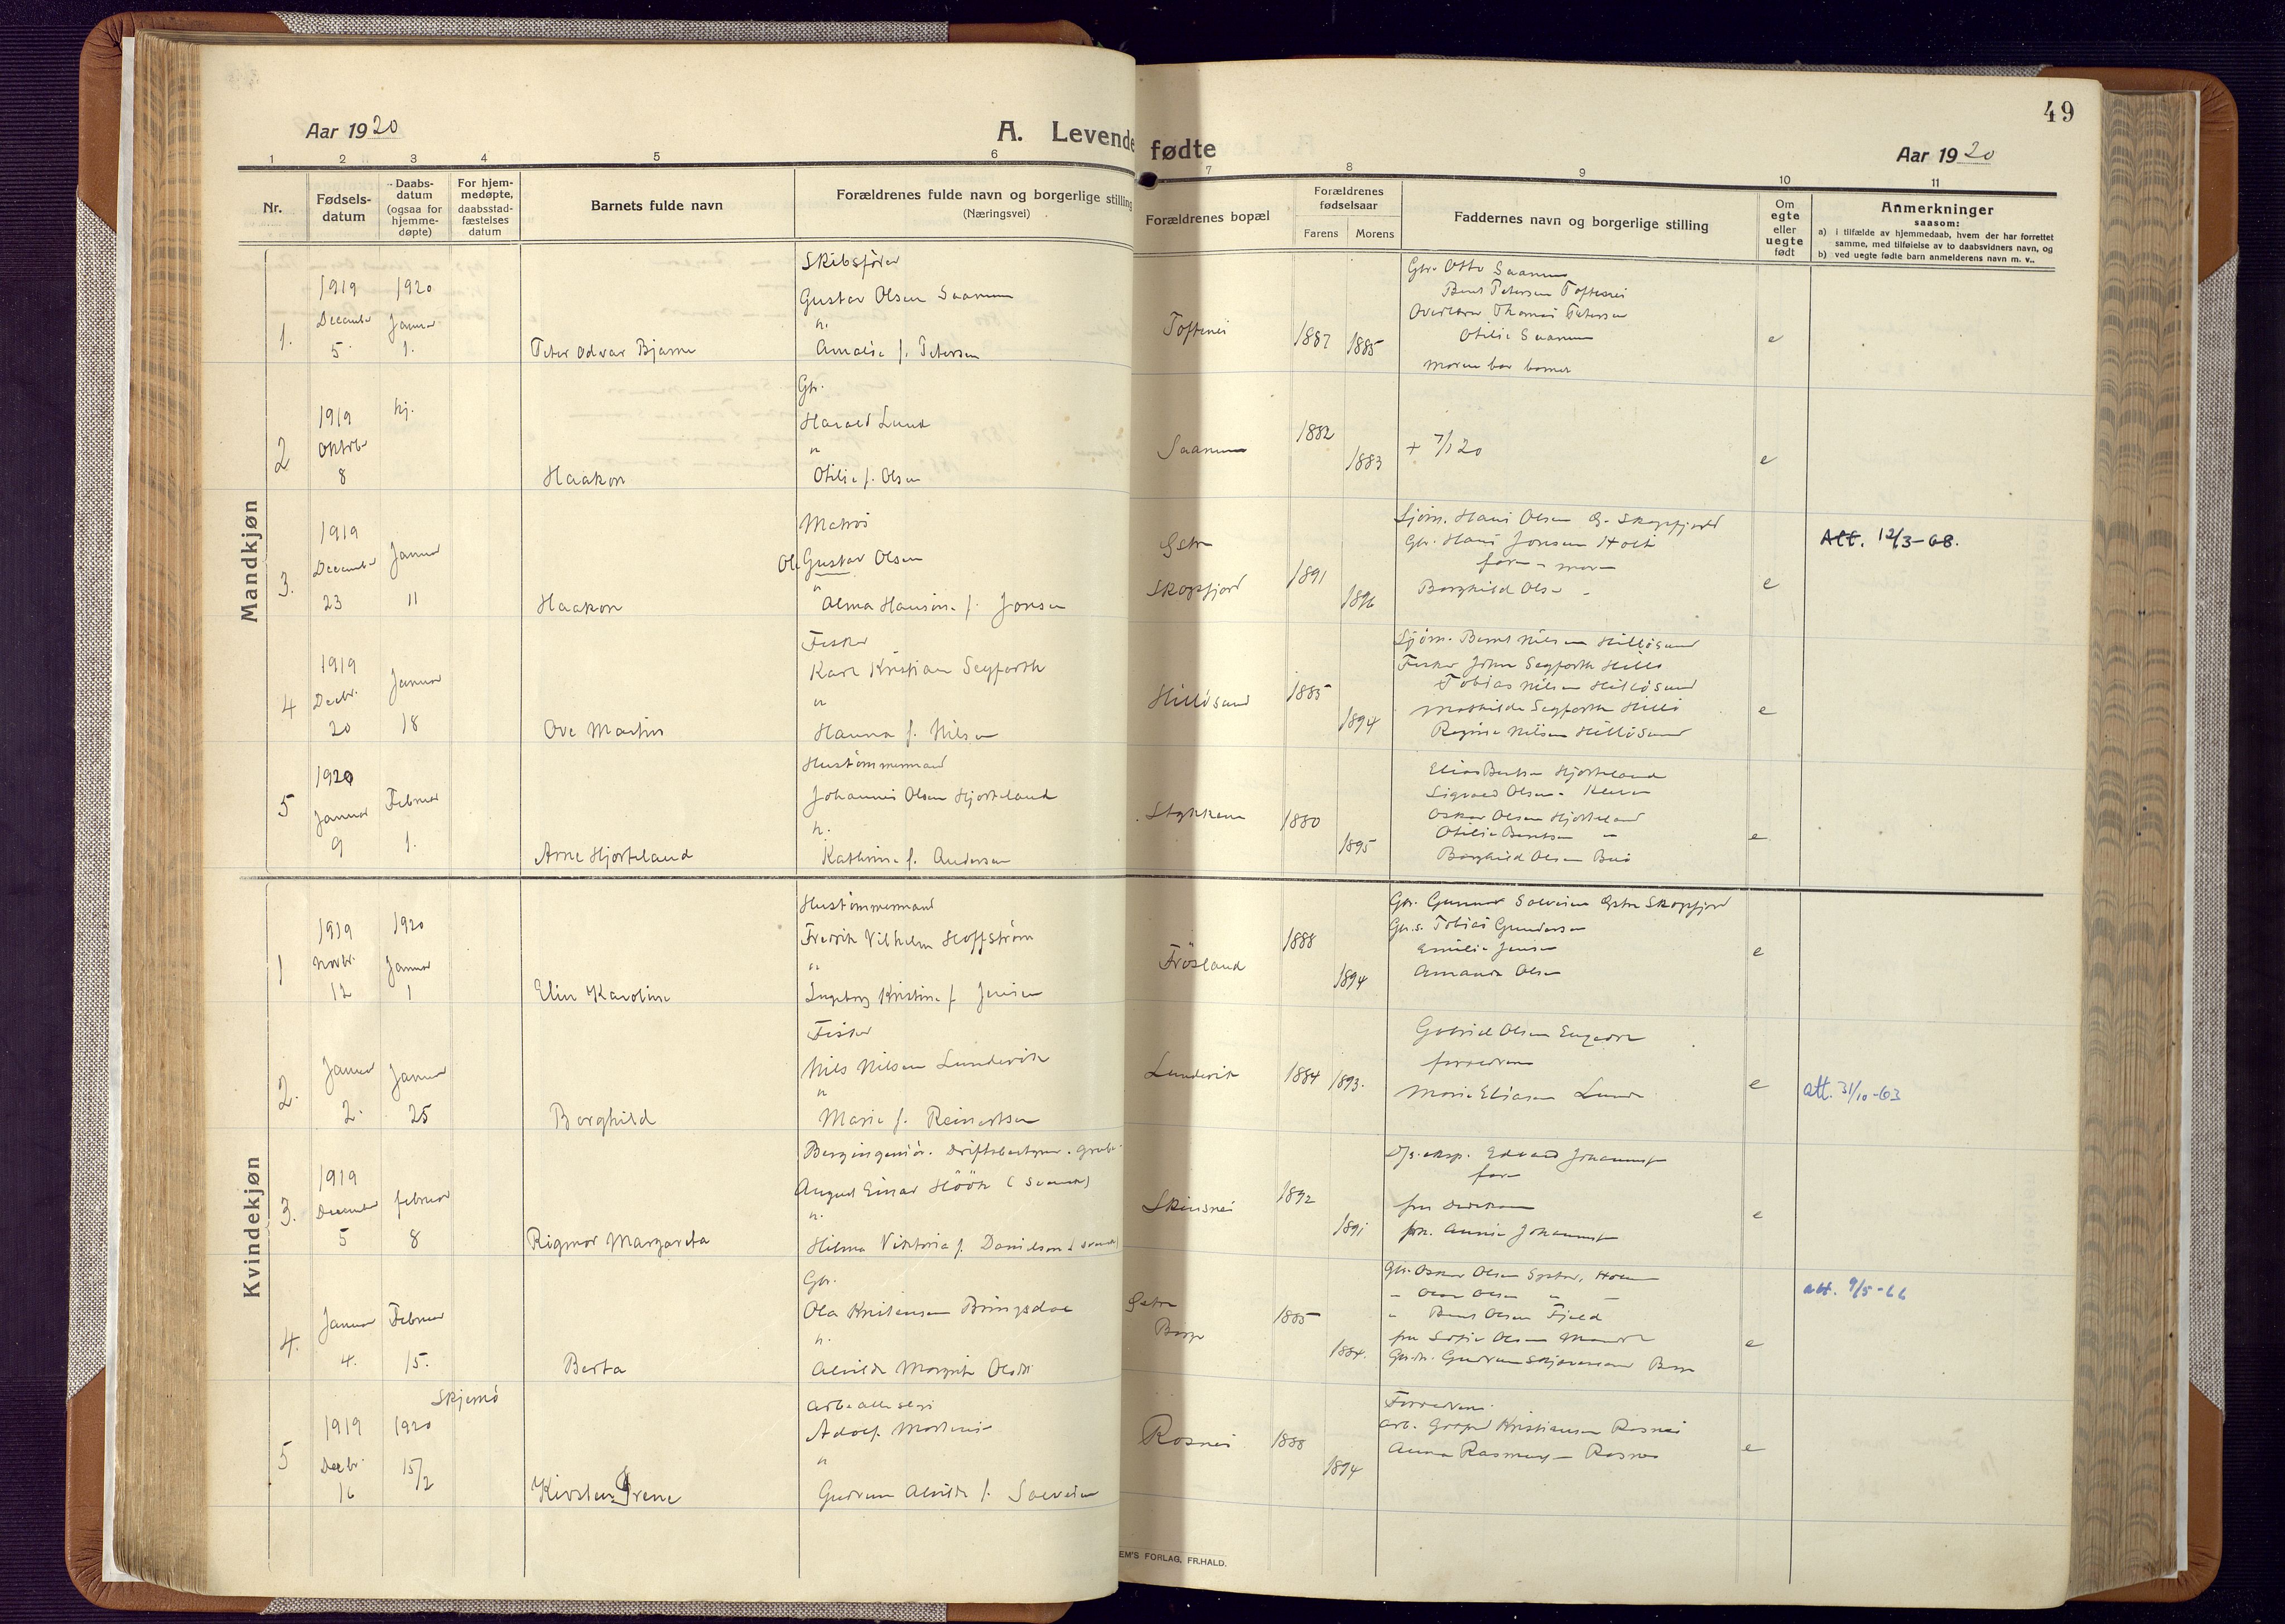 49
Aar 1920
A. Levende fødte
Aar 1920
1 2 3 4 5 6 7 8 9 10 11
Nr.
Fødsels-
datum
Daabs-
datum
(ogsaa for
hjemme-
døpte)
For hjem-
medøpte,
daabsstad-
fæstelses
datum
Barnets fulde navn
Forældrenes fulde navn og borgerlige stilling
(Næringsvei)
Forældrenes bopæl
Forældrenes
fødselsaar
Farens Morens
Faddernes navn og borgerlige stilling
Om
egte
eller
uegte
født
Anmerkninger
saasom:
a) i tilfælde av hjemmedaab, hvem der har forrettet
samme, med tilføielse av to daabsvidners navn, og
b) ved uegte fødte barn anmelderens navn m. v..
Mandkjøn
1.
1919
December
5.
1920
Januar
1.
Peter Odvar Bjarne
Skibsfører
Gustav Olsen Saanum
n.
Amalie f. Petersen
Toftenes
1887
1885
Gbr. Otto Saanum
Bent Petersen Toftenes
Overlærer Thomas Petersen
Otilie Saanum
moren bar barnet
e
2
1919
Oktbr
8
hj.
Haakon
Gbr.
Harald Lund
n
Otilie f. Olsen
Saanum
1882
1883
+ 7/1 20
e
3.
1919
December
23
Januar
11
Haakon
Matros
Ole Gustav Olsen
n
Alma Hansine f. Jonsen
Østre
Skogsfjord
1891
1896
Sjøm. Hans Olsen Ø. Skogsfjord
Gbr. Hans Jonsen Holt
far - mor
Borghild Olsen
e
Att. 12/3-68.
4
1919
Decbr.
20
Januar
18
Ove Martin
Fisker
Karl Kristian Segforth
n
Hanna f. Nilsen
Hillösund
1885
1894
Sjøm. Bernt Nilsen Hillösund
Fisker John Segforth Hillö
Tobias Nilsen Hillösund
Mathilde Segforth Hillö
Regine Nilsen Hillösund
e
5
1920
Januar
9
Februar
1.
Arne Hjorteland
Hustömmermand
Johannes Olsen Hjorteland
n.
Kathrine f. Andersen
Stykkene
1880
1895
Elias Bentsen Hjorteland
Sigvald Olsen
Oskar Olsen Hjorteland
Otilie Bentsen "
Borghild Olsen Buö
e
Kvindekjøn
1
1919
Novbr.
12
1920
Januar
1
Elin Karoline
Hustömmermand
Fredrik Vilhelm Hoffström
n
Ingeborg Kristine f. Jensen
Fröisland
1888
1894
Gbr. Gunnar Salvesen Østre Skogsfjord
Gbr.s. Tobias Gundersen
Emilie Jensen
Amanda Olsen
e
2.
Januar
2.
Januar
25
Borghild
Fisker
Nils Nilsen Lundevik
n
Marie f. Reinertsen
Lundevik
1884
1893.
Gabriel Olsen
forældrene
Marie Eliasen Lund
e
att. 31/10-63
3.
1919
December
5
februar
8
Rigmor Margareta
Bergingeniör. Driftsbestyrer. grube
August Einar Höök (svensk)
n.
Hilma Viktoria f. Danielson (svensk)
Skinsnes
1892
1891
D/s. eksp. Edvard Johannesen
far
frk. Annie Johannesen
e
4.
Januar
4.
Februar
15.
Berta
Gbr.
Ola Kristensen Bringsdal
n.
Alvilde Margrit Olsdtr
Østre
Berge
1885
1884.
Gbr. Oskar Olsen
" Olav Olsen "
" Bent Olsen Fjeld
fru Sofie Olsen Mandal
e
att. 9/5-66
5
1919
Decbr.
16
Skjernö
1920
15/2
Kirsten Irene
Adolf Mortensen
n
Gudrun Alvilde f. Salvesen
Rosnes
1888
1894
Forældrene
arb. Kristiansen Rosnes
Anna Rasmussen Rosnes
e
EM'S FORLAG, FR.HALD.